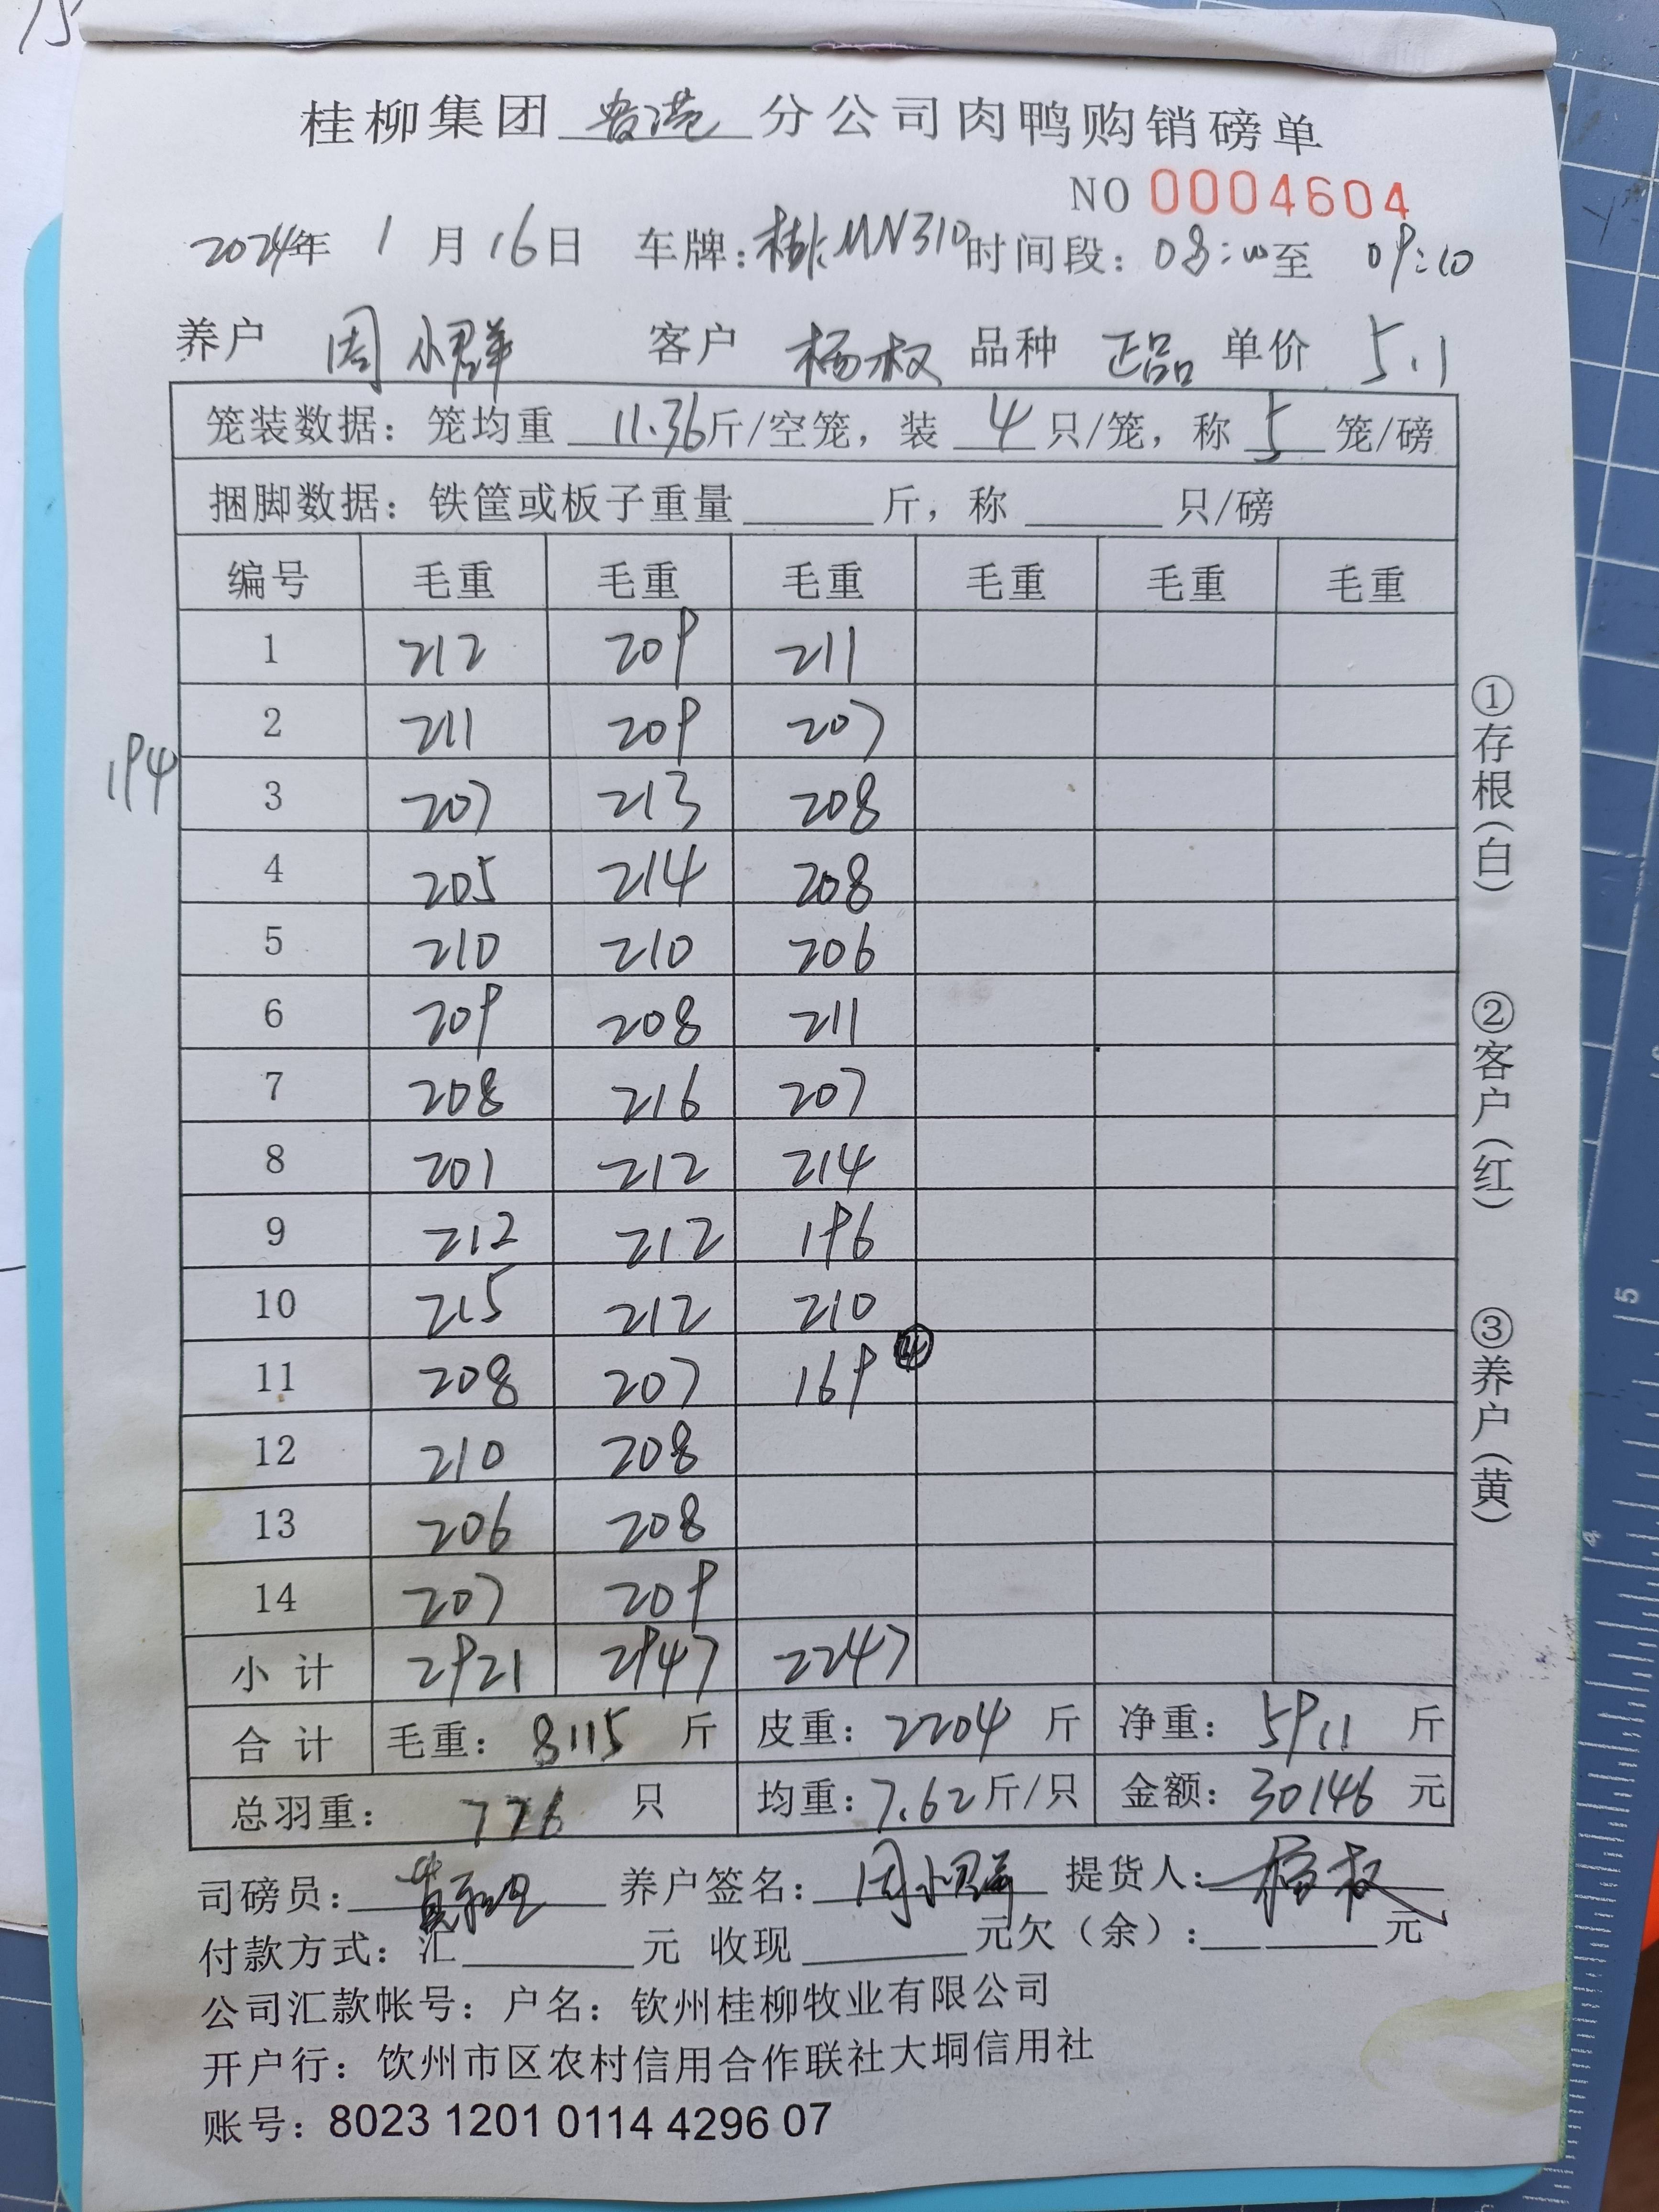 桂柳集团 贵港 分公司肉鸭购销磅单
NO 0004604
2024年 1月16日 车牌:桂MN310 时间段:08:00至 09:10
养户 周小群 客户 杨权 品种 正品 单价 5.1
笼装数据:笼均重 11.36斤/空笼,装 4 只/笼,称 5 笼/磅
捆脚数据:铁筐或板子重量______斤,称______只/磅
编号 毛重 毛重 毛重 毛重 毛重 毛重
1 212 209 211
2 211 209 207
194
3 207 213 208
4 205 214 208
5 210 210 206
6 209 208 211
7 208 216 207
8 201 212 214
9 212 212 196
10 215 212 210
11 208 207 169 ④
12 210 208
13 206 208
14 207 209
小计 2921 2947 2247
合计 毛重:8115斤 皮重:2204斤 净重:5911斤
总羽重:776只 均重:7.62斤/只 金额:30146元
司磅员: 养户签名:周小群 提货人:杨权
付款方式:汇______元 收现______元欠(余):______元
公司汇款帐号:户名:钦州桂柳牧业有限公司
开户行:钦州市区农村信用合作联社大垌信用社
账号:8023 1201 0114 4296 07
①存根(白)
②客户(红)
③养户(黄)